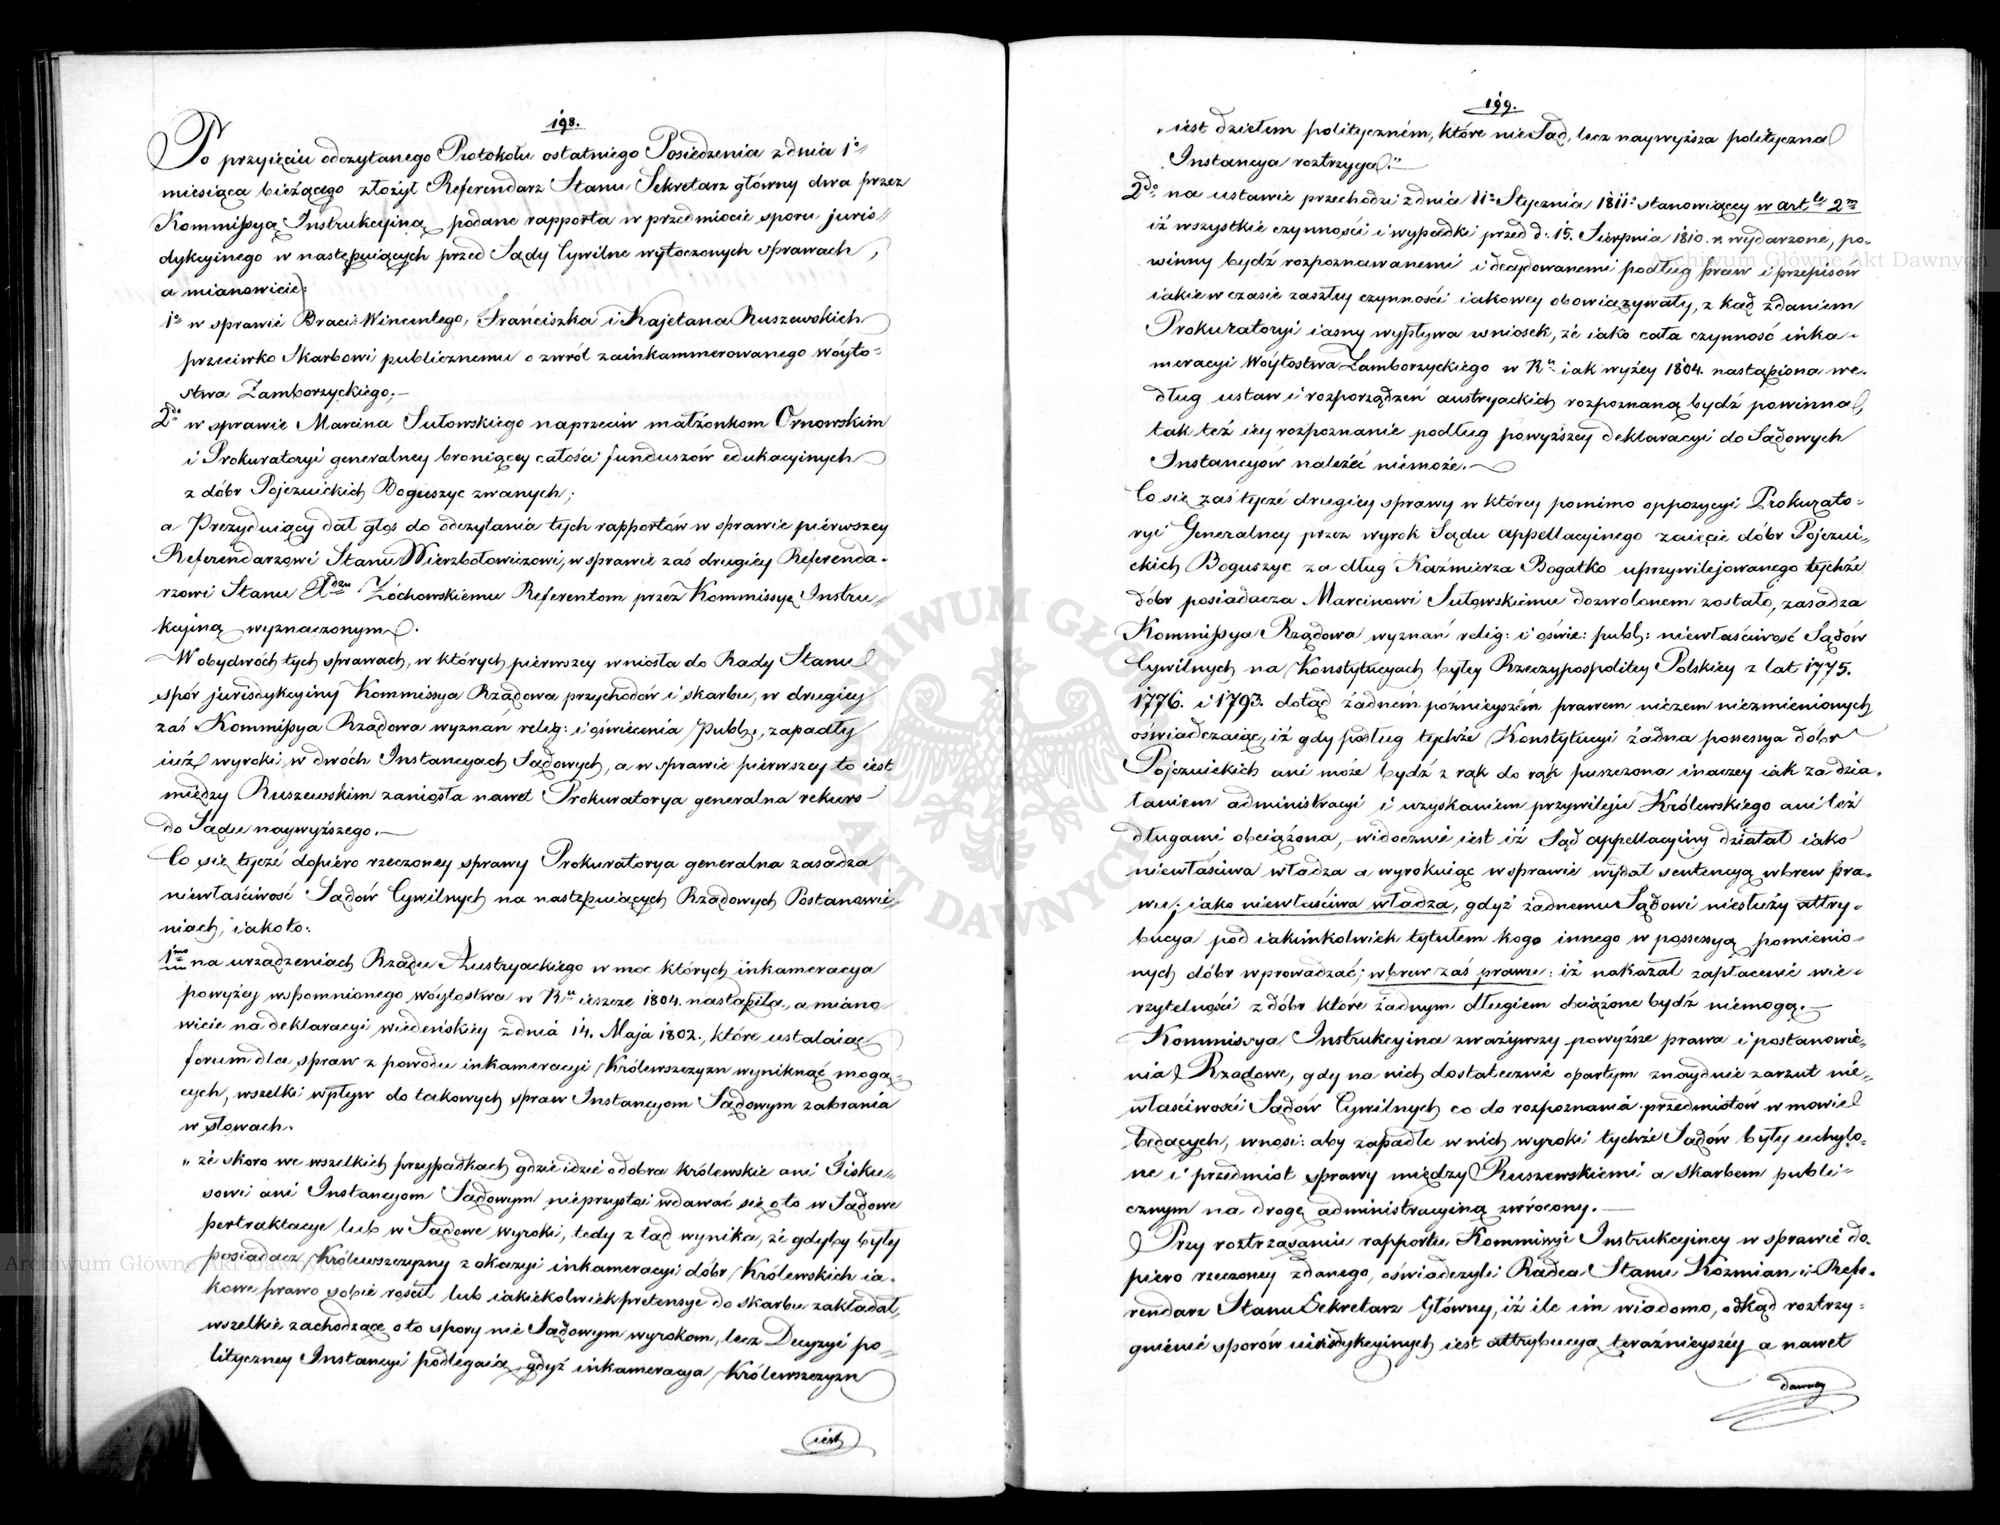 198.
Po przyięciu odczytanego Protokołu ostatniego Posiedzenia z dnia 1o
miesiąca bieżącego złożył Referendarz Stanu Sekretarz główny dwa przez
Kommissyą Instrukcyiną podane rapporta w przedmiocie sporu juris„
dykcyinego w następuiących przed Sądy Cywilne wytoczonych sprawach,
a mianowicie:
1o w sprawie Braci Wincentego, Franciszka i Kajetana Ruszewskich
przeciwko Skarbowi publicznemu o zwrót zainkammerowanego wóyto-
stwa Zamborzyckiego;—
2do w sprawie Marcina Sułowskiego naprzeciw małżonkom Ornowskim
i Prokuratoryi generalney broniącey całości funduszów edukacyinych
z dóbr Pojezuickich Boguszyc zwanych;
a Prezyduiący dał głos do odczytania tych rapportów w sprawie pierwszey
Referendarzowi Stanu Wierzbołowiczowi, w sprawie zaś drugiey Referenda-
rzowi Stanu Xdzu Żóchowskiemu Referentom przez Kommissyą Instru„
kcyiną wyznaczonym.
W obydwóch tych sprawach, w których pierwszey wniosła do Rady Stanu
spór jurisdykcyiny Kommissya Rządowa przychodów i skarbu, w drugiey
zaś Kommissya Rządowa wyznań relig: i oświecenia Publ:, zapadły
iuż wyroki w dwóch Instancyach Sądowych, a w sprawie pierwszey to iest
między Ruszewskim zaniosła nawet Prokuratorya generalna rekurs
do Sądu naywyższego.—
Co się tycze dopiero rzeczoney sprawy Prokuratorya generalna zasadza
niewłaściwość Sądów Cywilnych na następuiących Rządowych Postanowie„
niach, iako to:
1mo na urządzeniach Rządu Austryackiego w moc których inkameracya
powyżey wspomnionego wóytostwa w Ru ieszcze 1804. nastąpiła, a miano
wicie na deklaracyi wiedeńskiey z dnia 14. Maja 1802., które ustalaiąc
forum dla spraw z powodu inkameracyi Królewszczyzn wyniknąć mogą„
cych, wszelki wpływ do takowych spraw Instancyom Sądowym zabrania
w słowach.
„ że skoro we wszelkich przypadkach gdzie idzie o dobra królewskie ani Fisku„
sowi ani Instancyom Sądowym nieprzystoi wdawać się o to w Sądowe
pertraktacye lub w Sądowe wyroki, tedy z tąd wynika, że gdyby były
posiadacz Królewszczyzny z okazyi inkameracyi dóbr Królewskich ia-
kowe prawo sobie rościł lub iakiekolwiek pretensye do skarbu zakładał,
wszelkie zachodzące o to spory nie Sądowym wyrokom, lecz Decyzyi po„
lityczney Instancyi podlegaią, gdyż inkameracya Królewszczyzn
iest
199.
„ iest dziełem polityczném, które nie Sąd, lecz naywyższa polityczna
Instancya roztrzyga."
2do na ustawie przechodzi z dnia 11o Stycznia 1811o stanowiącey w artle 2m
iż wszystkie czynności i wypadki przed d. 15. Sierpnia 1810. r. wydarzone, po-
winny bydź rozpoznawanemi i decydowanemi podług praw i przepisów
iakie w czasie zaszłey czynności iakowey obowiązywały, z kąd zdaniem
Prokuratoryi iasny wypływa wniosek, że iako cała czynność inka-
meracyi Wóytostwa Zamborzyckiego w Ru iak wyżey 1804. nastąpiona we-
dług ustaw i rozporządzeń austryackich rozpoznaną bydź powinna,
tak też iey rozpoznanie podług powyższey deklaracyi do Sądowych
Instancyów należéć niemoże.—
Co się zaś tycze drugiey sprawy w którey pomimo oppozycyi Prokurato-
ryi Generalney przez wyrok Sądu appellacyinego zaięcie dóbr Pojezui„
ckich Boguszyc za dług Kazmierza Bogatko uprzywilejowanego tychże
dóbr posiadacza Marcinowi Sułowskiemu dozwolonem zostało, zasadza
Kommissya Rządowa wyznań relig: i oświe: publ: niewłaściwość Sądów
Cywilnych na Konstytucyach byłey Rzeczypospolitey Polskiey z lat 1775.
1776. i 1793. dotąd żadném późnieyszém prawem niczem niezmienionych
oświadczaiąc, iż gdy podług tychże Konstytucyi żadna possessya dóbr
Pojezuickich ani może bydź z rąk do rąk puszczona inaczey iak za dzia-
łaniem administracyi i uzyskaniem przywileju Królewskiego ani też
długami obciążona, widocznie iest iż Sąd appellacyiny działał iako
niewłaściwa władza a wyrokuiąc w sprawie wydał sentencyą wbrew pra-
wu; iako niewłaściwa władza, gdyż żadnemu Sądowi niesłuży attry-
bucya pod iakimkolwiek tytułem kogo innego w possessyą pomienio-
nych dóbr wprowadzać; wbrew zaś prawu: iż nakazał zapłacenie wie-
rzytelności z dóbr które żadnym długiem obciążone bydź niemogą.—
Kommissya Instrukcyina zważywszy powyższe prawa i postanowie-
nia Rządowe, gdy na nich dostatecznie opartym znayduie zarzut nie„
właściwości Sądów Cywilnych co do rozpoznania przedmiotów w mowie
będących, wnosi: aby zapadłe w nich wyroki tychże Sądów były uchylo-
ne i przedmiot sprawy między Ruszewskiemi a skarbem publi-
cznym na drogę administracyiną zwrócony.—
Przy roztrząsaniu rapportu Kommissyi Instrukcyiney w sprawie do
piero rzeczoney zdanego, oświadczyli Radca Stanu Koźmian i Refe-
rendarz Stanu Sekretarz Główny, iż ile im wiadomo, odkąd roztrzy-
gnienie sporów iurisdykcyinych iest attrybucyą teraźnieyszéy a nawet
dawney
Archiwum Główne Akt Dawnych
Archiwum Główne Akt Dawnych
ARCHIWUM GŁÓWNE AKT DAWNYCH